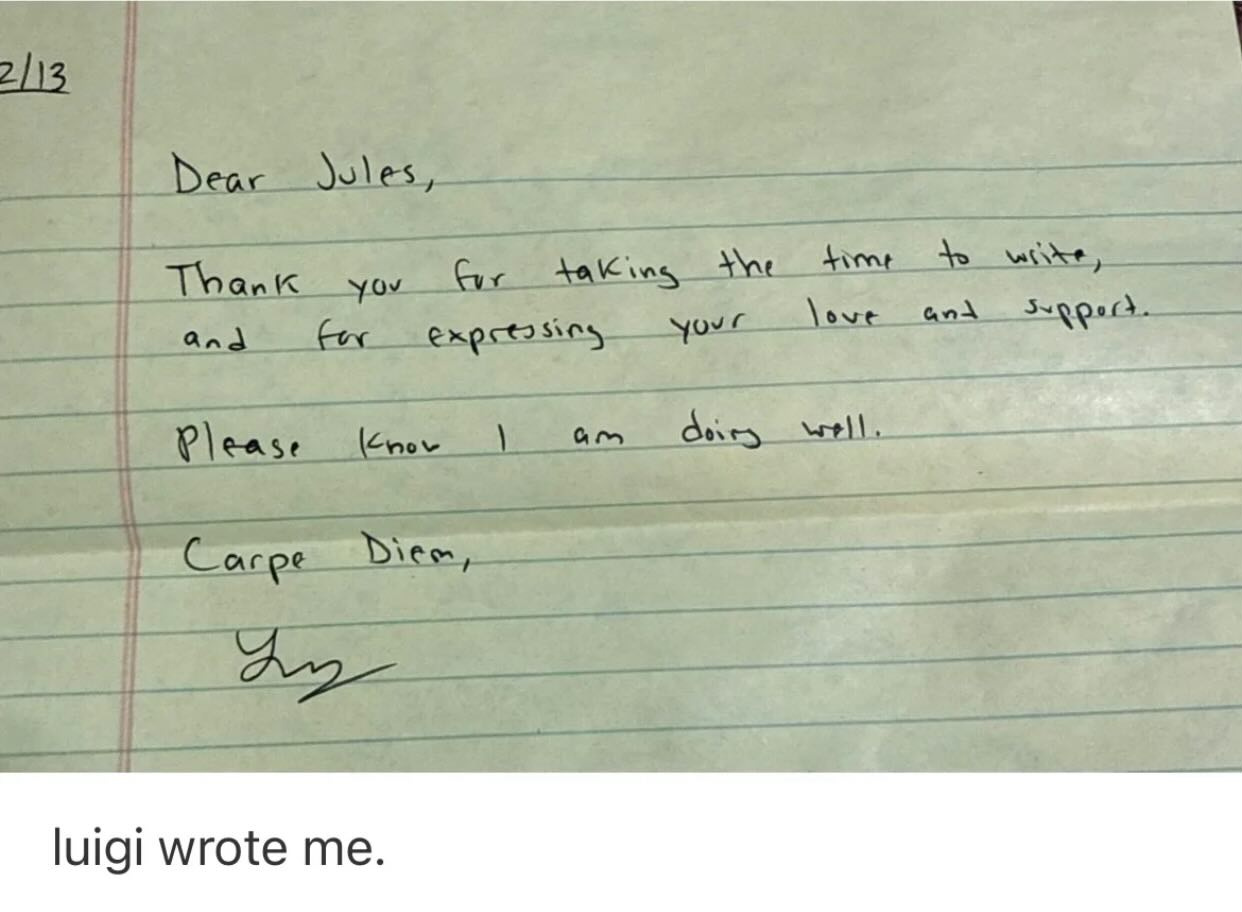 2/13
Dear Jules,
Thank you for taking the time to write,
and for expressing your love and support.
Please know I am doing well.
Carpe Diem,
luigi wrote me.